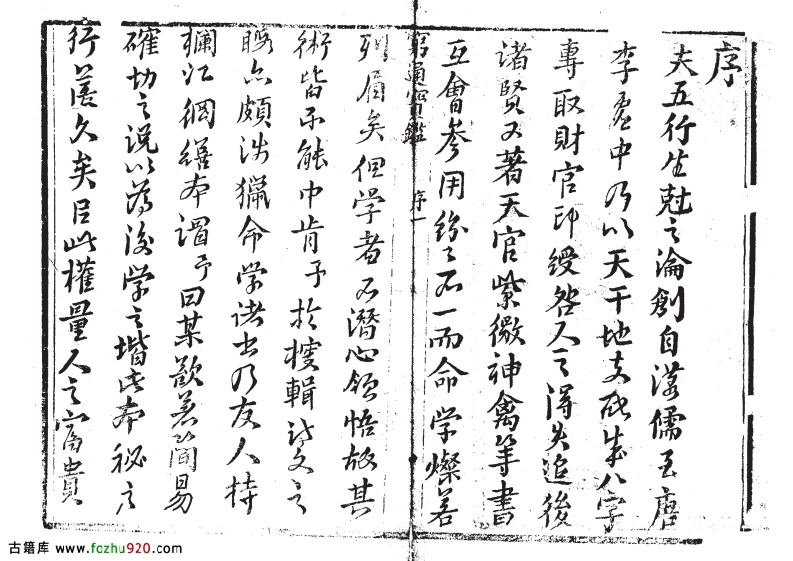 序
夫五行生尅之論創自漢儒至唐
李虛中乃以天干地支配成八字
專取財官印綬咎人之得失追後
諸賢又著天官紫微神禽等書
互會參用紛々不一而命学燦若
窮通寶鑑 序一
列眉矣但学者不潛心領悟故其
術皆不能中肯予於搜輯詩文之
暇亦頗涉獵命学諸書乃友人持
欄江網繕本謂予曰某欲著簡易
確切之說以為後学之堦此本秘之
行篋久矣以此權量人之富貴
古籍库 www.fozhu920.com